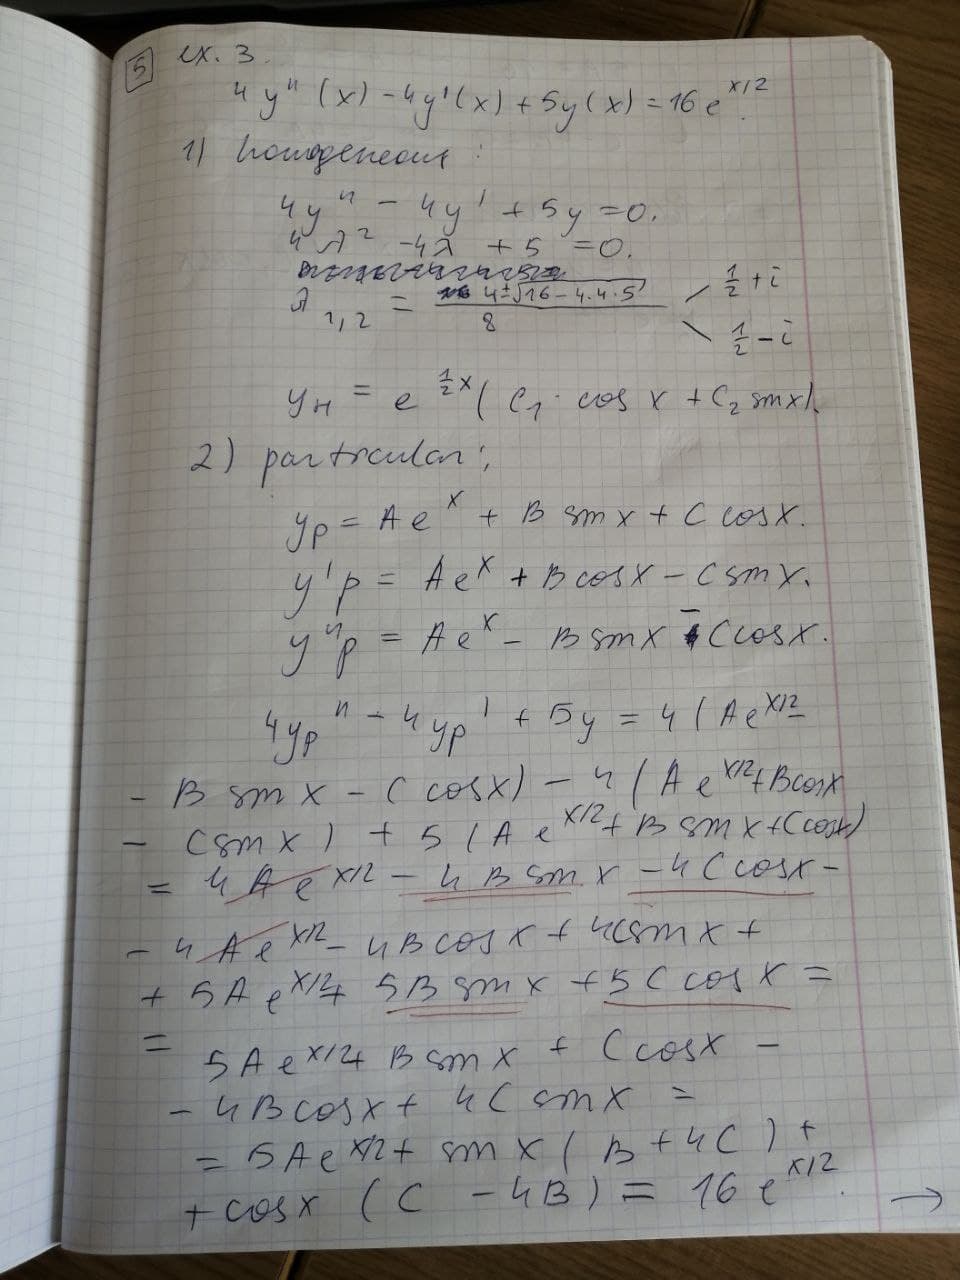 5 ex. 3.
4y'' (x) - 4y'(x) + 5y(x) = 16 e^{x/2}.
1) homogeneous:
4y'' - 4y' + 5y = 0.
4λ² - 4λ + 5 = 0.
λ_{1,2} = (4 ± √(16 - 4·4·5)) / 8 ½ + i
½ - i
y_H = e^{½x} (C₁ · cos x + C₂ sin x).
2) particular:
y_p = A e^x + B sin x + C cos x.
y'p = A e^x + B cos x - C sin x.
y''p = A e^x - B sin x - C cos x.
4y_p'' - 4y_p' + 5y = 4 (A e^{x/2} -
- B sin x - C cos x) - 4 (A e^{x/2} + B cos x
- C sin x) + 5 (A e^{x/2} + B sin x + C cos x)
= 4 A e^{x/2} - 4 B sin x - 4 C cos x -
- 4 A e^{x/2} - 4 B cos x + 4 C sin x +
+ 5A e^{x/2} + 5B sin x + 5 C cos x =
= 5A e^{x/2} + B sin x + C cos x -
- 4 B cos x + 4C sin x =
= 5A e^{x/2} + sin x ( B + 4C ) +
+ cos x ( C - 4B ) = 16 e^{x/2}. →